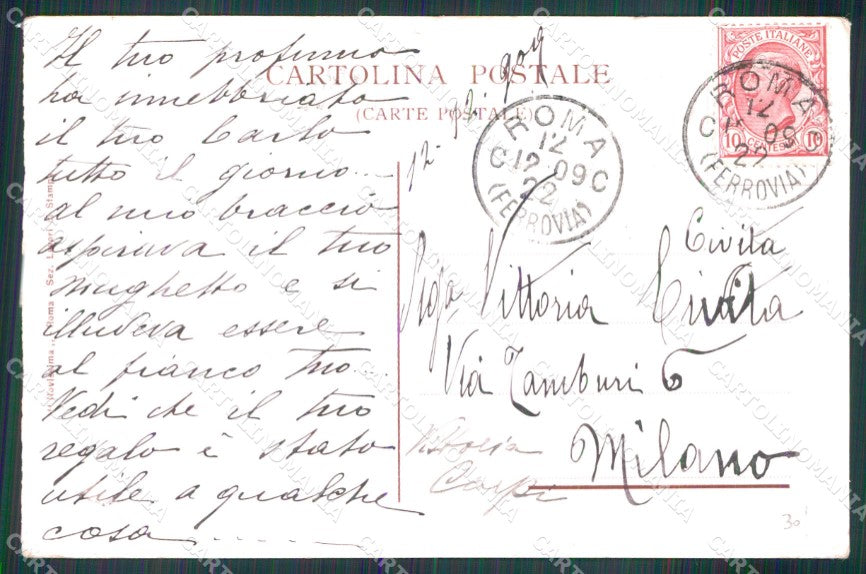 Il tuo profumo
ha innebbriato
il tuo Carlo
tutto il giorno...
al mio braccio
aspirava il tuo
mughetto e si
illudeva essere
al fianco tuo...
Vedi che il tuo
regalo è stato
utile a qualche
cosa .......
CARTOLINA POSTALE
(CARTE POSTALE)
12-12-909
ROMA
12
12 09
22
(FERROVIA)
POSTE ITALIANE
10 CENTESIMI 10
ROMA
12
12 09
22
(FERROVIA)
Civita
Vittoria Civita
Via Tamburi 6
Milano
Vittoria
Carpi
30
CARTOLINOMANIA